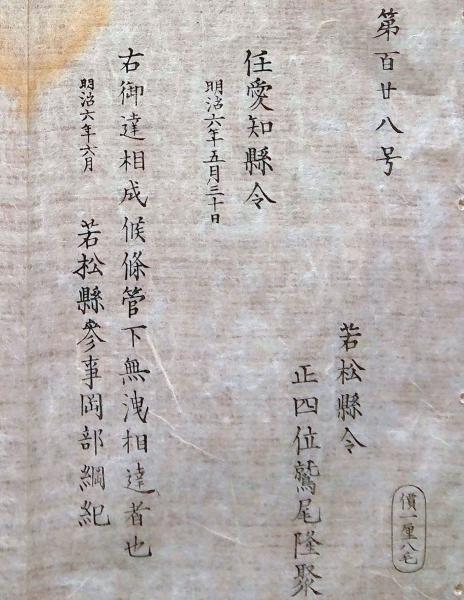 第百廿八号
若松縣令
正四位鷲尾隆聚
任愛知縣令
明治六年五月三十日
右御達相成候條管下無洩相達者也
明治六年六月
若松縣参事岡部綱紀
價一厘八毛